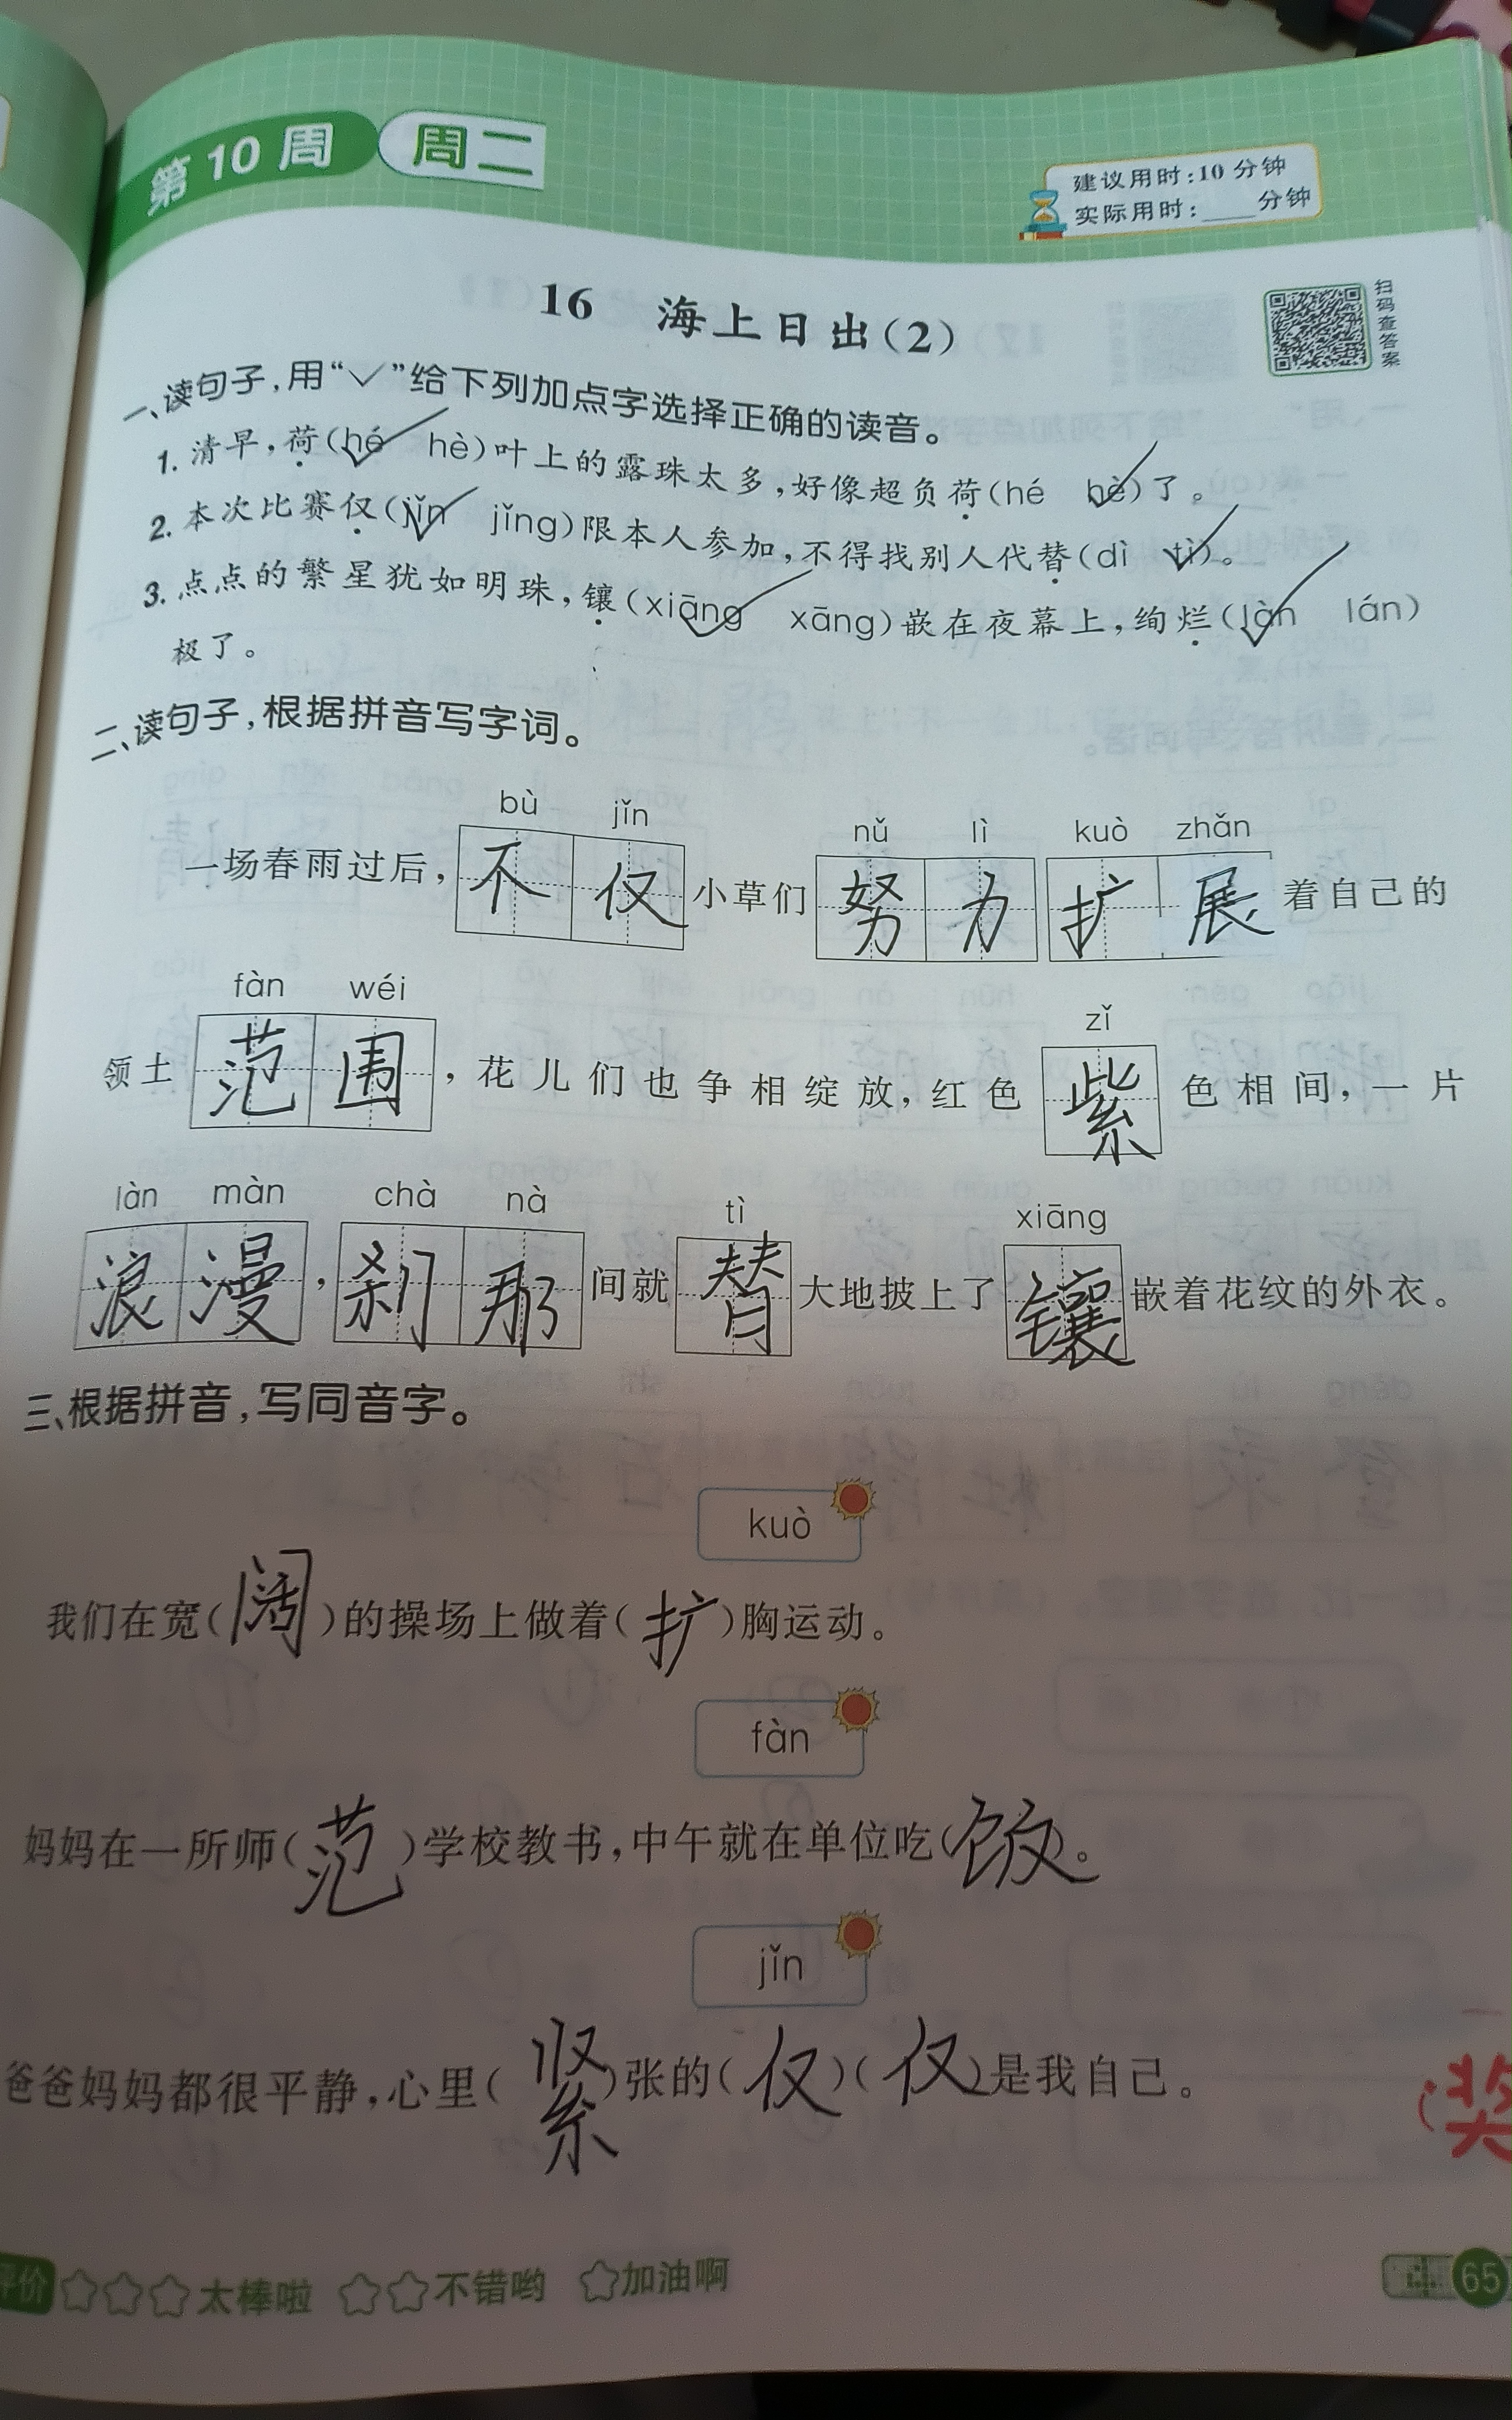 第10周 周二
建议用时:10分钟
实际用时:____分钟
16 海上日出(2)
扫码查答案
一、读句子,用“✓”给下列加点字选择正确的读音。
1. 清早,荷(hé✓ hè)叶上的露珠太多,好像超负荷(hé hè✓)了。
2. 本次比赛仅(jǐn✓ jǐng)限本人参加,不得找别人代替(dì tì✓)。
3. 点点的繁星犹如明珠,镶(xiāng✓ xāng)嵌在夜幕上,绚烂(làn✓ lán)
极了。
二、读句子,根据拼音写字词。
bù jǐn nǔ lì kuò zhǎn
一场春雨过后,不仅小草们努力扩展着自己的
fàn wéi zǐ
领土范围,花儿们也争相绽放,红色紫色相间,一片
làn màn chà nà tì xiāng
浪漫,刹那间就替大地披上了镶嵌着花纹的外衣。
三、根据拼音,写同音字。
kuò
我们在宽(阔)的操场上做着(扩)胸运动。
fàn
妈妈在一所师(范)学校教书,中午就在单位吃(饭)。
jǐn
爸爸妈妈都很平静,心里(紧)张的(仅)(仅)是我自己。
奖
评价 ☆☆☆太棒啦 ☆☆不错哟 ☆加油啊
65